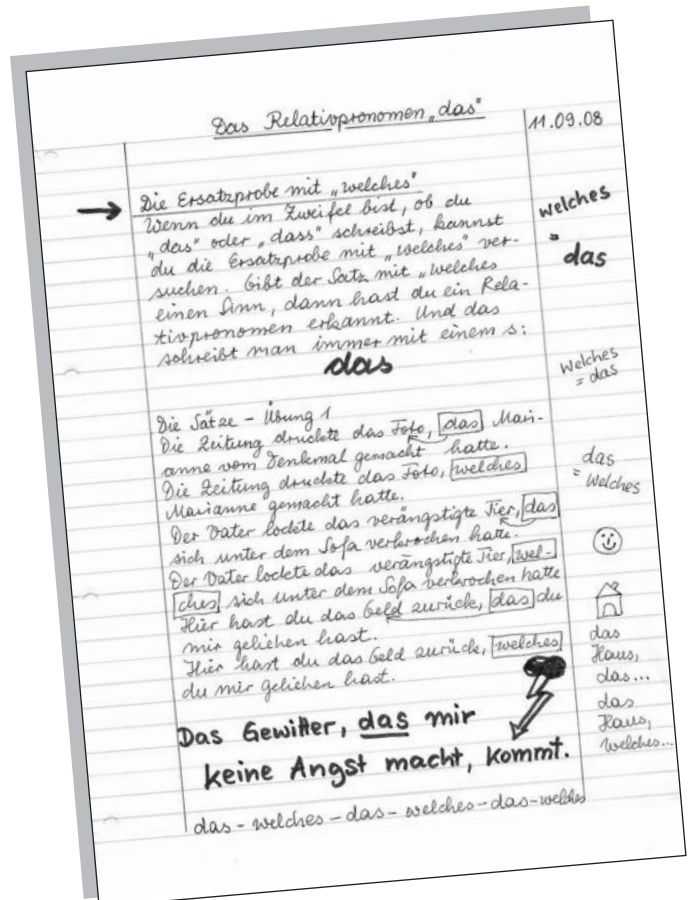 Das Relativpronomen „das"
11.09.08
Die Ersatzprobe mit „welches"
Wenn du im Zweifel bist, ob du
„das" oder „dass" schreibst, kannst
du die Ersatzprobe mit „welches" ver-
suchen. Gibt der Satz mit „welches
einen Sinn, dann hast du ein Rela-
tivpronomen erkannt. Und das
schreibt man immer mit einem s:
das
Die Sätze – Übung 1
Die Zeitung druckte das Foto, das Mari-
anne vom Denkmal gemacht hatte.
Die Zeitung druckte das Foto, welches
Marianne gemacht hatte.
Der Vater lockte das verängstigte Tier, das
sich unter dem Sofa verkrochen hatte.
Der Vater lockte das verängstigte Tier, wel-
ches sich unter dem Sofa verkrochen hatte
Hier hast du das Geld zurück, das du
mir geliehen hast.
Hier hast du das Geld zurück, welches
du mir geliehen hast.
Das Gewitter, das mir
keine Angst macht, kommt.
das - welches - das - welches - das - welches
welches
=
das
Welches
= das
das
= Welches
das
Haus,
das...
das
Haus,
welches...